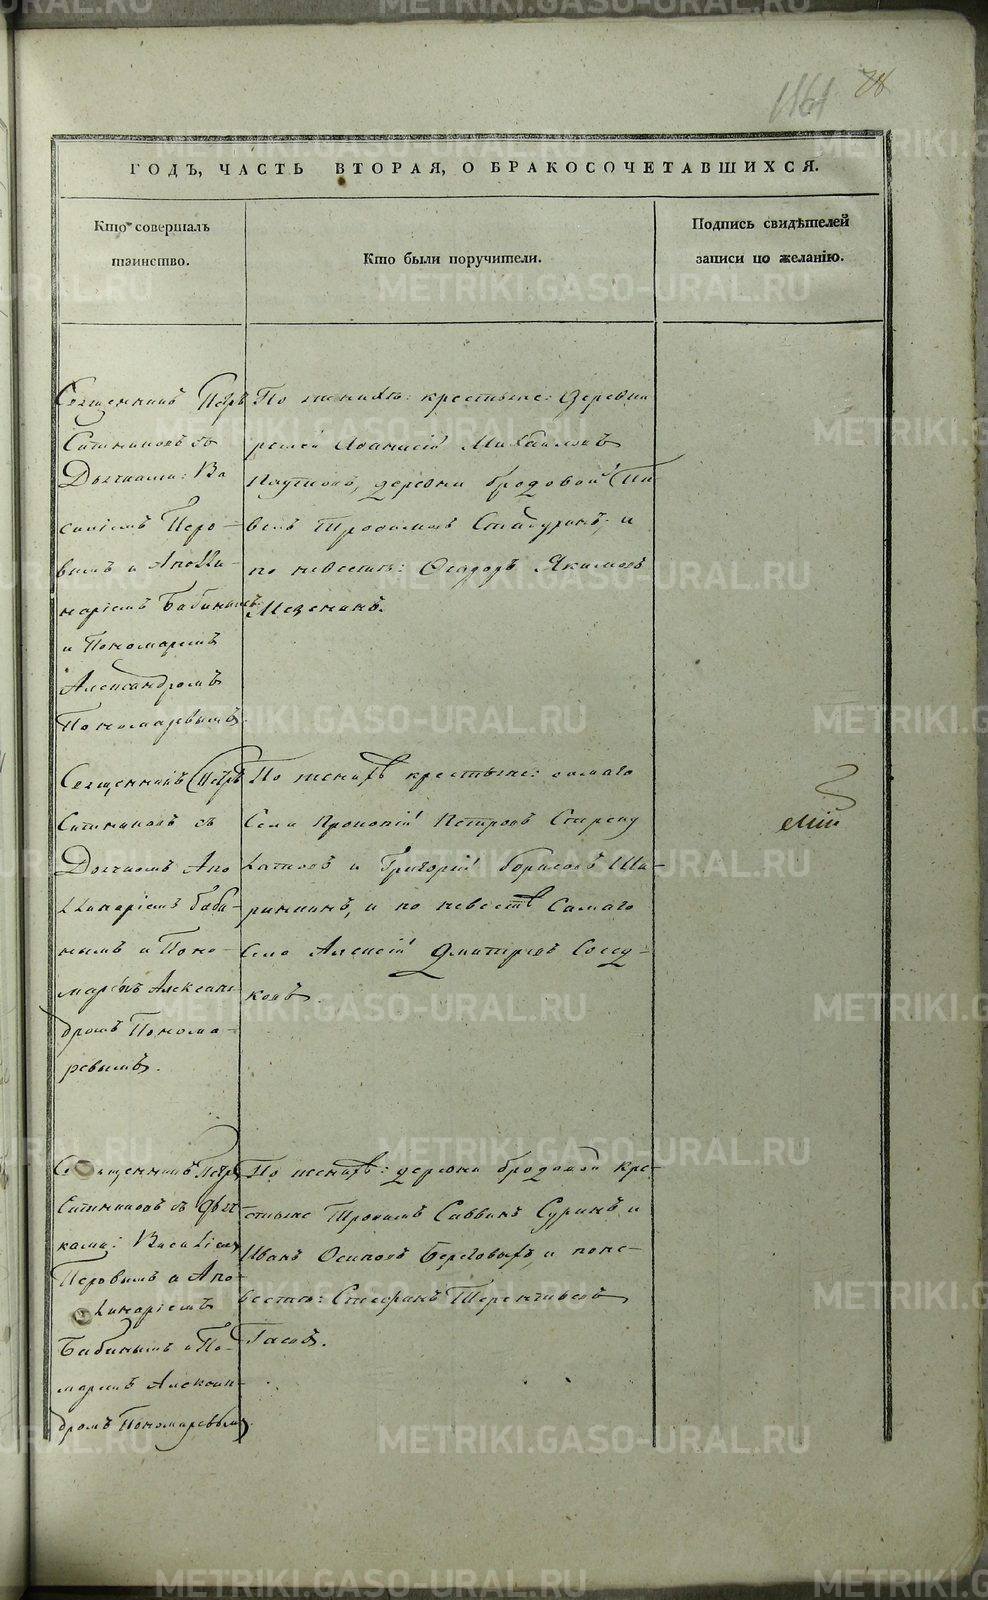 1161 78
ГОДЪ, ЧАСТЬ ВТОРАЯ, О БРАКОСОЧЕТАВШИХСЯ.
Кто совершалъ
таинство.
Кто были поручители.
Подпись свидѣтелей
записи по желанію.
Священникъ Петръ
Ситниковъ съ
Дьячками: Ва
силіемъ Перо-
вымъ и Аполли-
наріемъ Бабинымъ
и Пономаремъ
Александромъ
Пономаревымъ.
По женихѣ: крестьяне: деревни
Аѳанасій Михайловъ
деревни бродовой Па-
велъ Трофимовъ и
по невестѣ: Ѳеодоръ Якимовъ
Мезенинъ.
Священникъ Петръ
Ситниковъ съ
Дьячкомъ Апо
ллинаріемъ Баби-
нымъ и Поно-
маремъ Алексан-
дромъ Понома-
ревымъ.
По женихѣ крестьяне: самаго
Села Прокопій Петровъ
и Григорій Борисовъ
и по невестѣ Самаго
Села Алексій Дмитріевъ
Священникъ Петръ
Ситниковъ съ дьяч
ками: Василіемъ
Перовымъ и Апо-
ллинаріемъ
Бабинымъ и По-
маремъ Алексан-
дромъ Пономаревымъ.
По женихѣ: деревни бродовой кре-
стьяне Трофимъ Саввинъ Суринъ и
Иванъ Осиповъ Береговыхъ, и по не-
вестѣ: Стефанъ Терентьевъ
METRIKI.GASO-URAL.RU